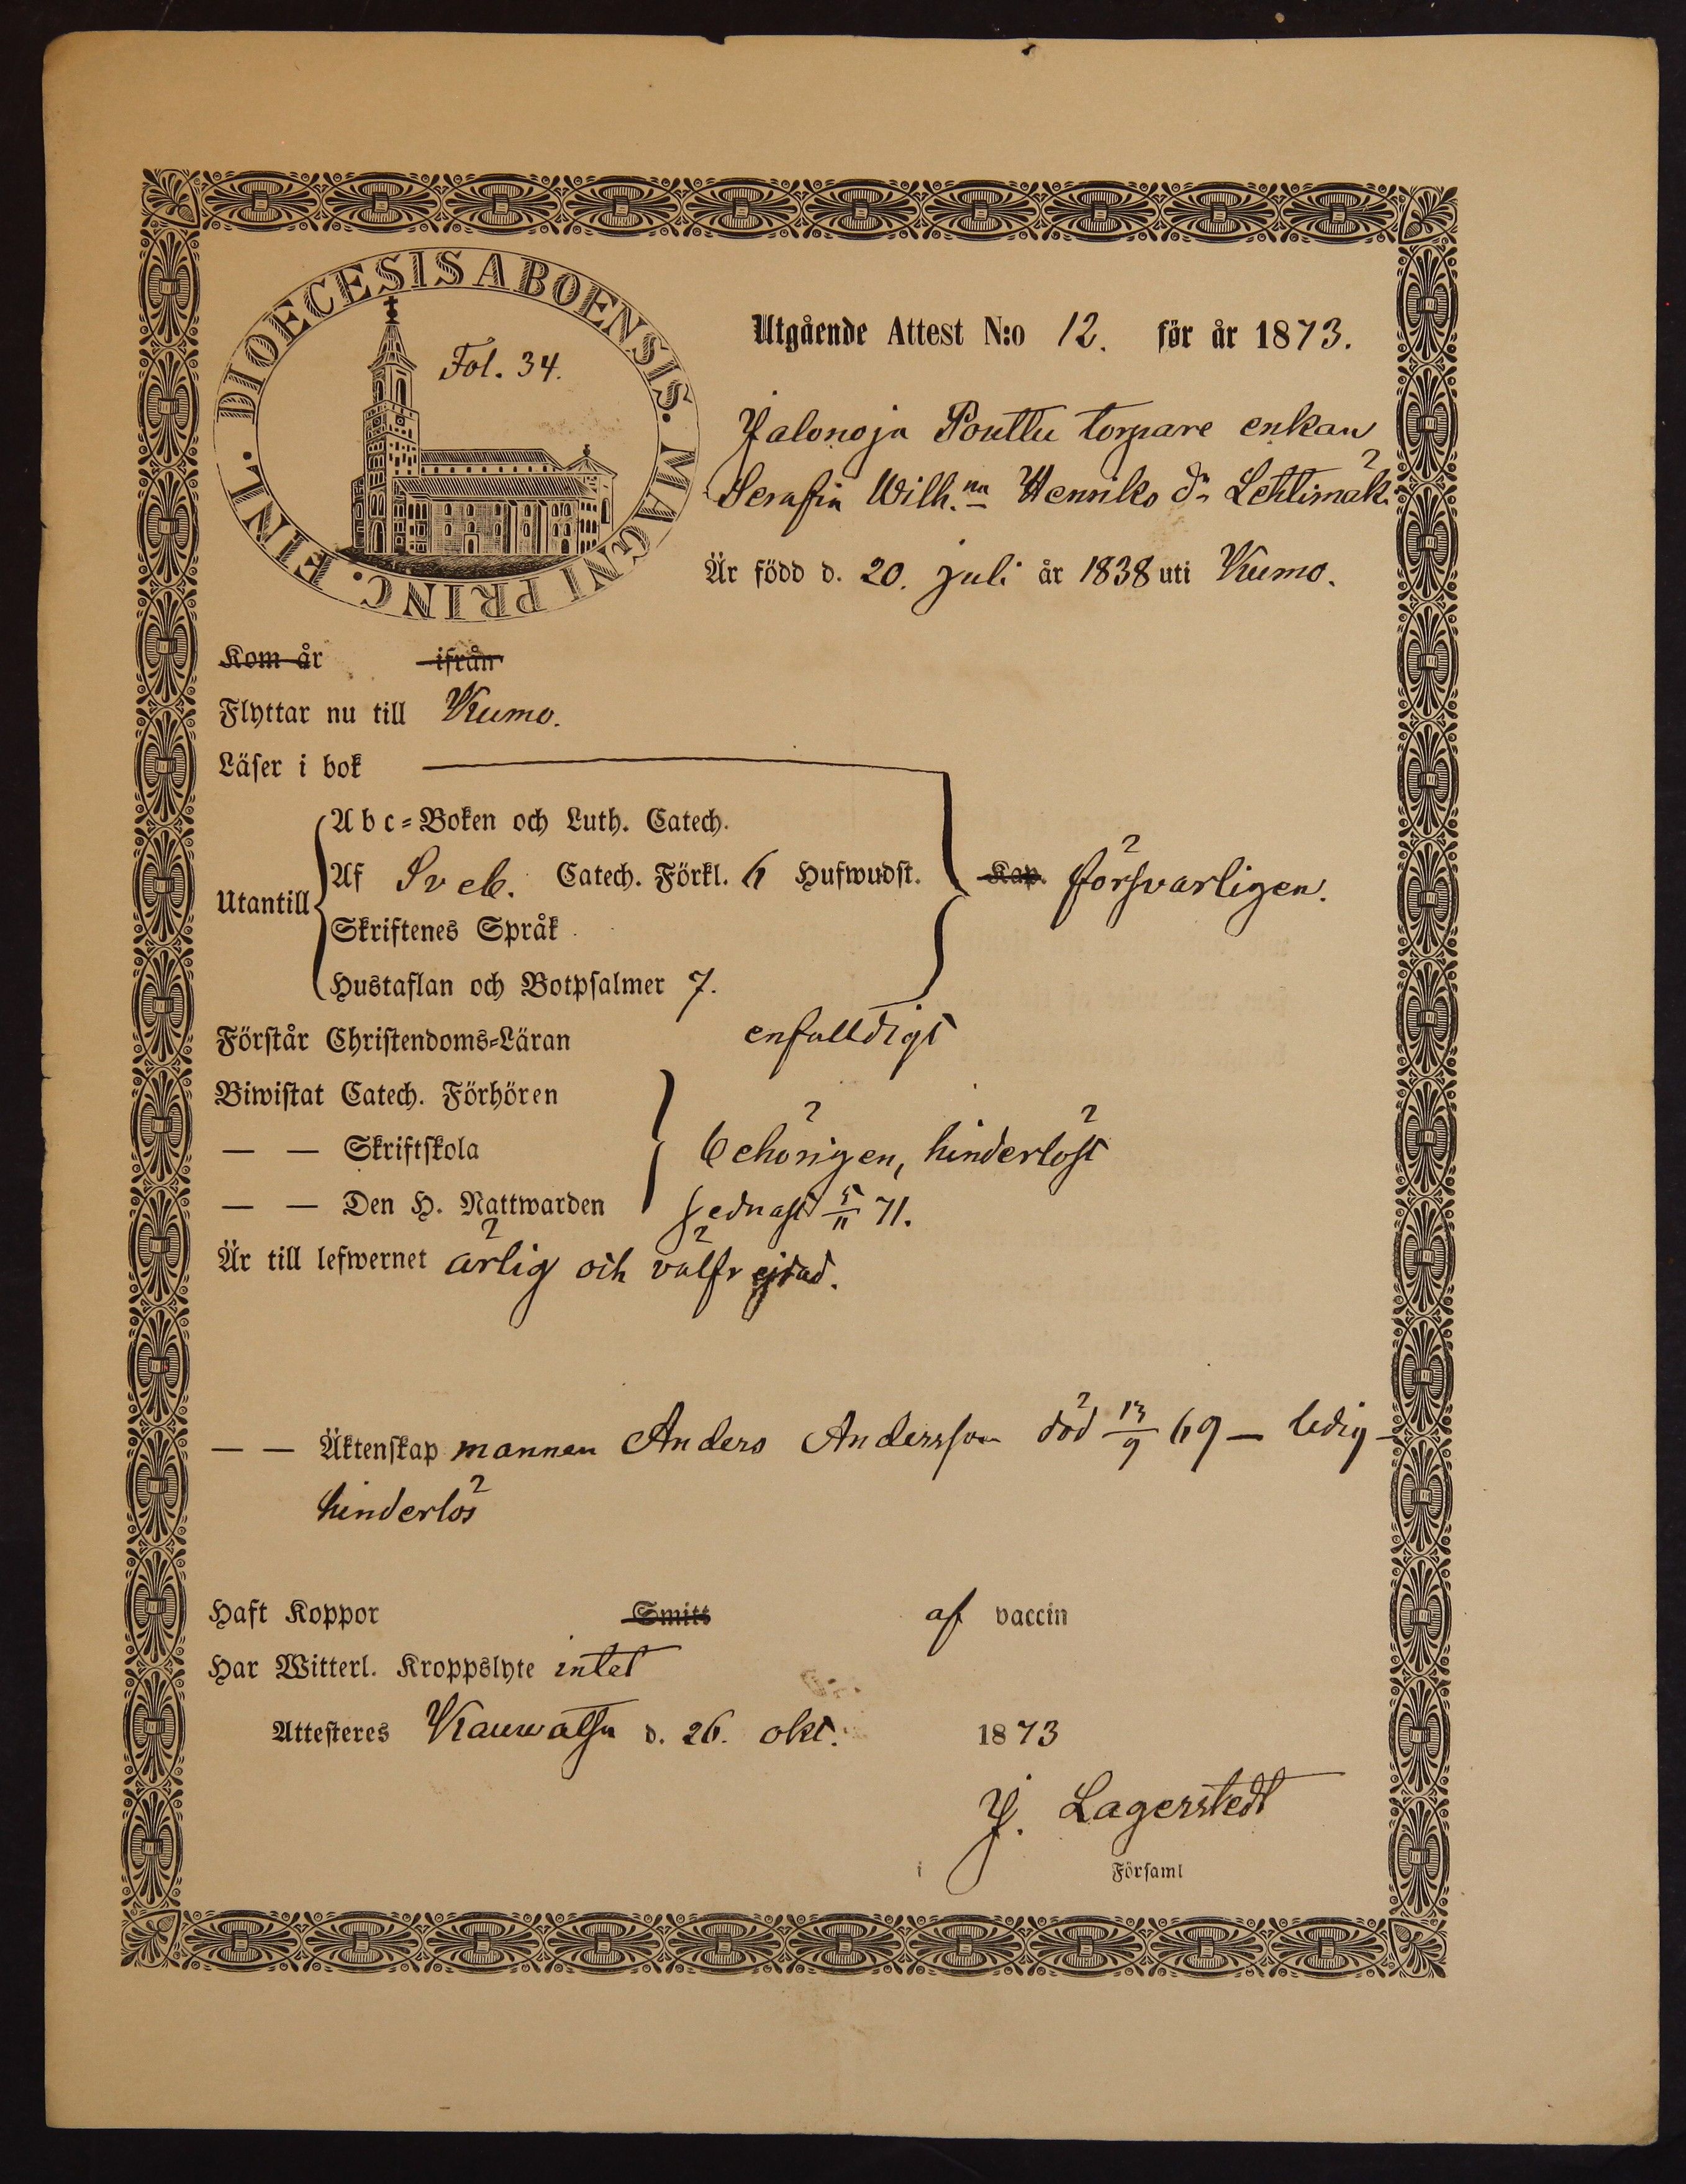 DIOECESIS ABOENSIS. MAGNI PRINC. FINL.
Fol. 34.
Utgående Attest N:o 12. för år 1873.
Jalonoja Pouttu torpare enkan
Serafia Wilh.na Henriks dr Lehtimäki
Är född d. 20. juli år 1838 uti Kumo.
Kom år ifrån
Flyttar nu till Kumo.
Läser i bok
Utantill
Abc=Boken och Luth. Catech.
Af Sveb. Catech. Förkl. 6 Hufwudst. Kap. försvarligen.
Skriftenes Språk
Hustaflan och Botpsalmer 7.
Förstår Christendoms=Läran enfalldigt
Biwistat Catech. Förhören
— — Skriftskola behörigen, hinderlöst
— — Den H. Nattwarden sednast 5/11 71.
Är till lefwernet ärlig och välfrejdad.
— — Äktenskap mannen Anders Andersson död 13/9 69 — ledig —
hinderlös
Haft Koppor Smitt af vaccin
Har Witterl. Kroppslyte intet
Attesteres Kauwatsa d. 26. okt. 1873
J. Lagerstedt
i Församl